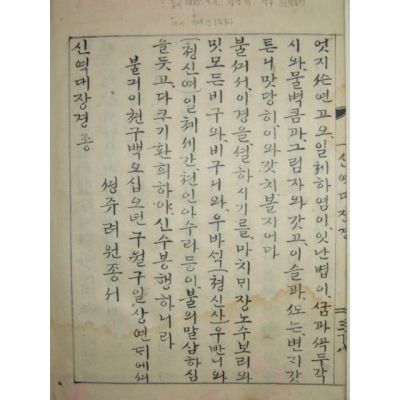 엇지싸연고요, 일체하염이, 잇난법이, 꿈과꼭두각
시와, 물벅큼과, 그림자와갓고, 이슬과, 또는번기갓
튼니맛당히이와갓치볼지어다
불께서, 이경을, 셜하시기를마치미장노수보리와
밋모든비구와, 비구니와, 우바석(쳥신사)우반니와
(쳥신여)일체세간, 쳔인아수라등이, 불의말삼하심
을듯고, 다크기환희하야, 신수봉행하니라
불긔이쳔구백오십오년구월구일, 상연에서
려원종서
신역대장경종
신역대장경